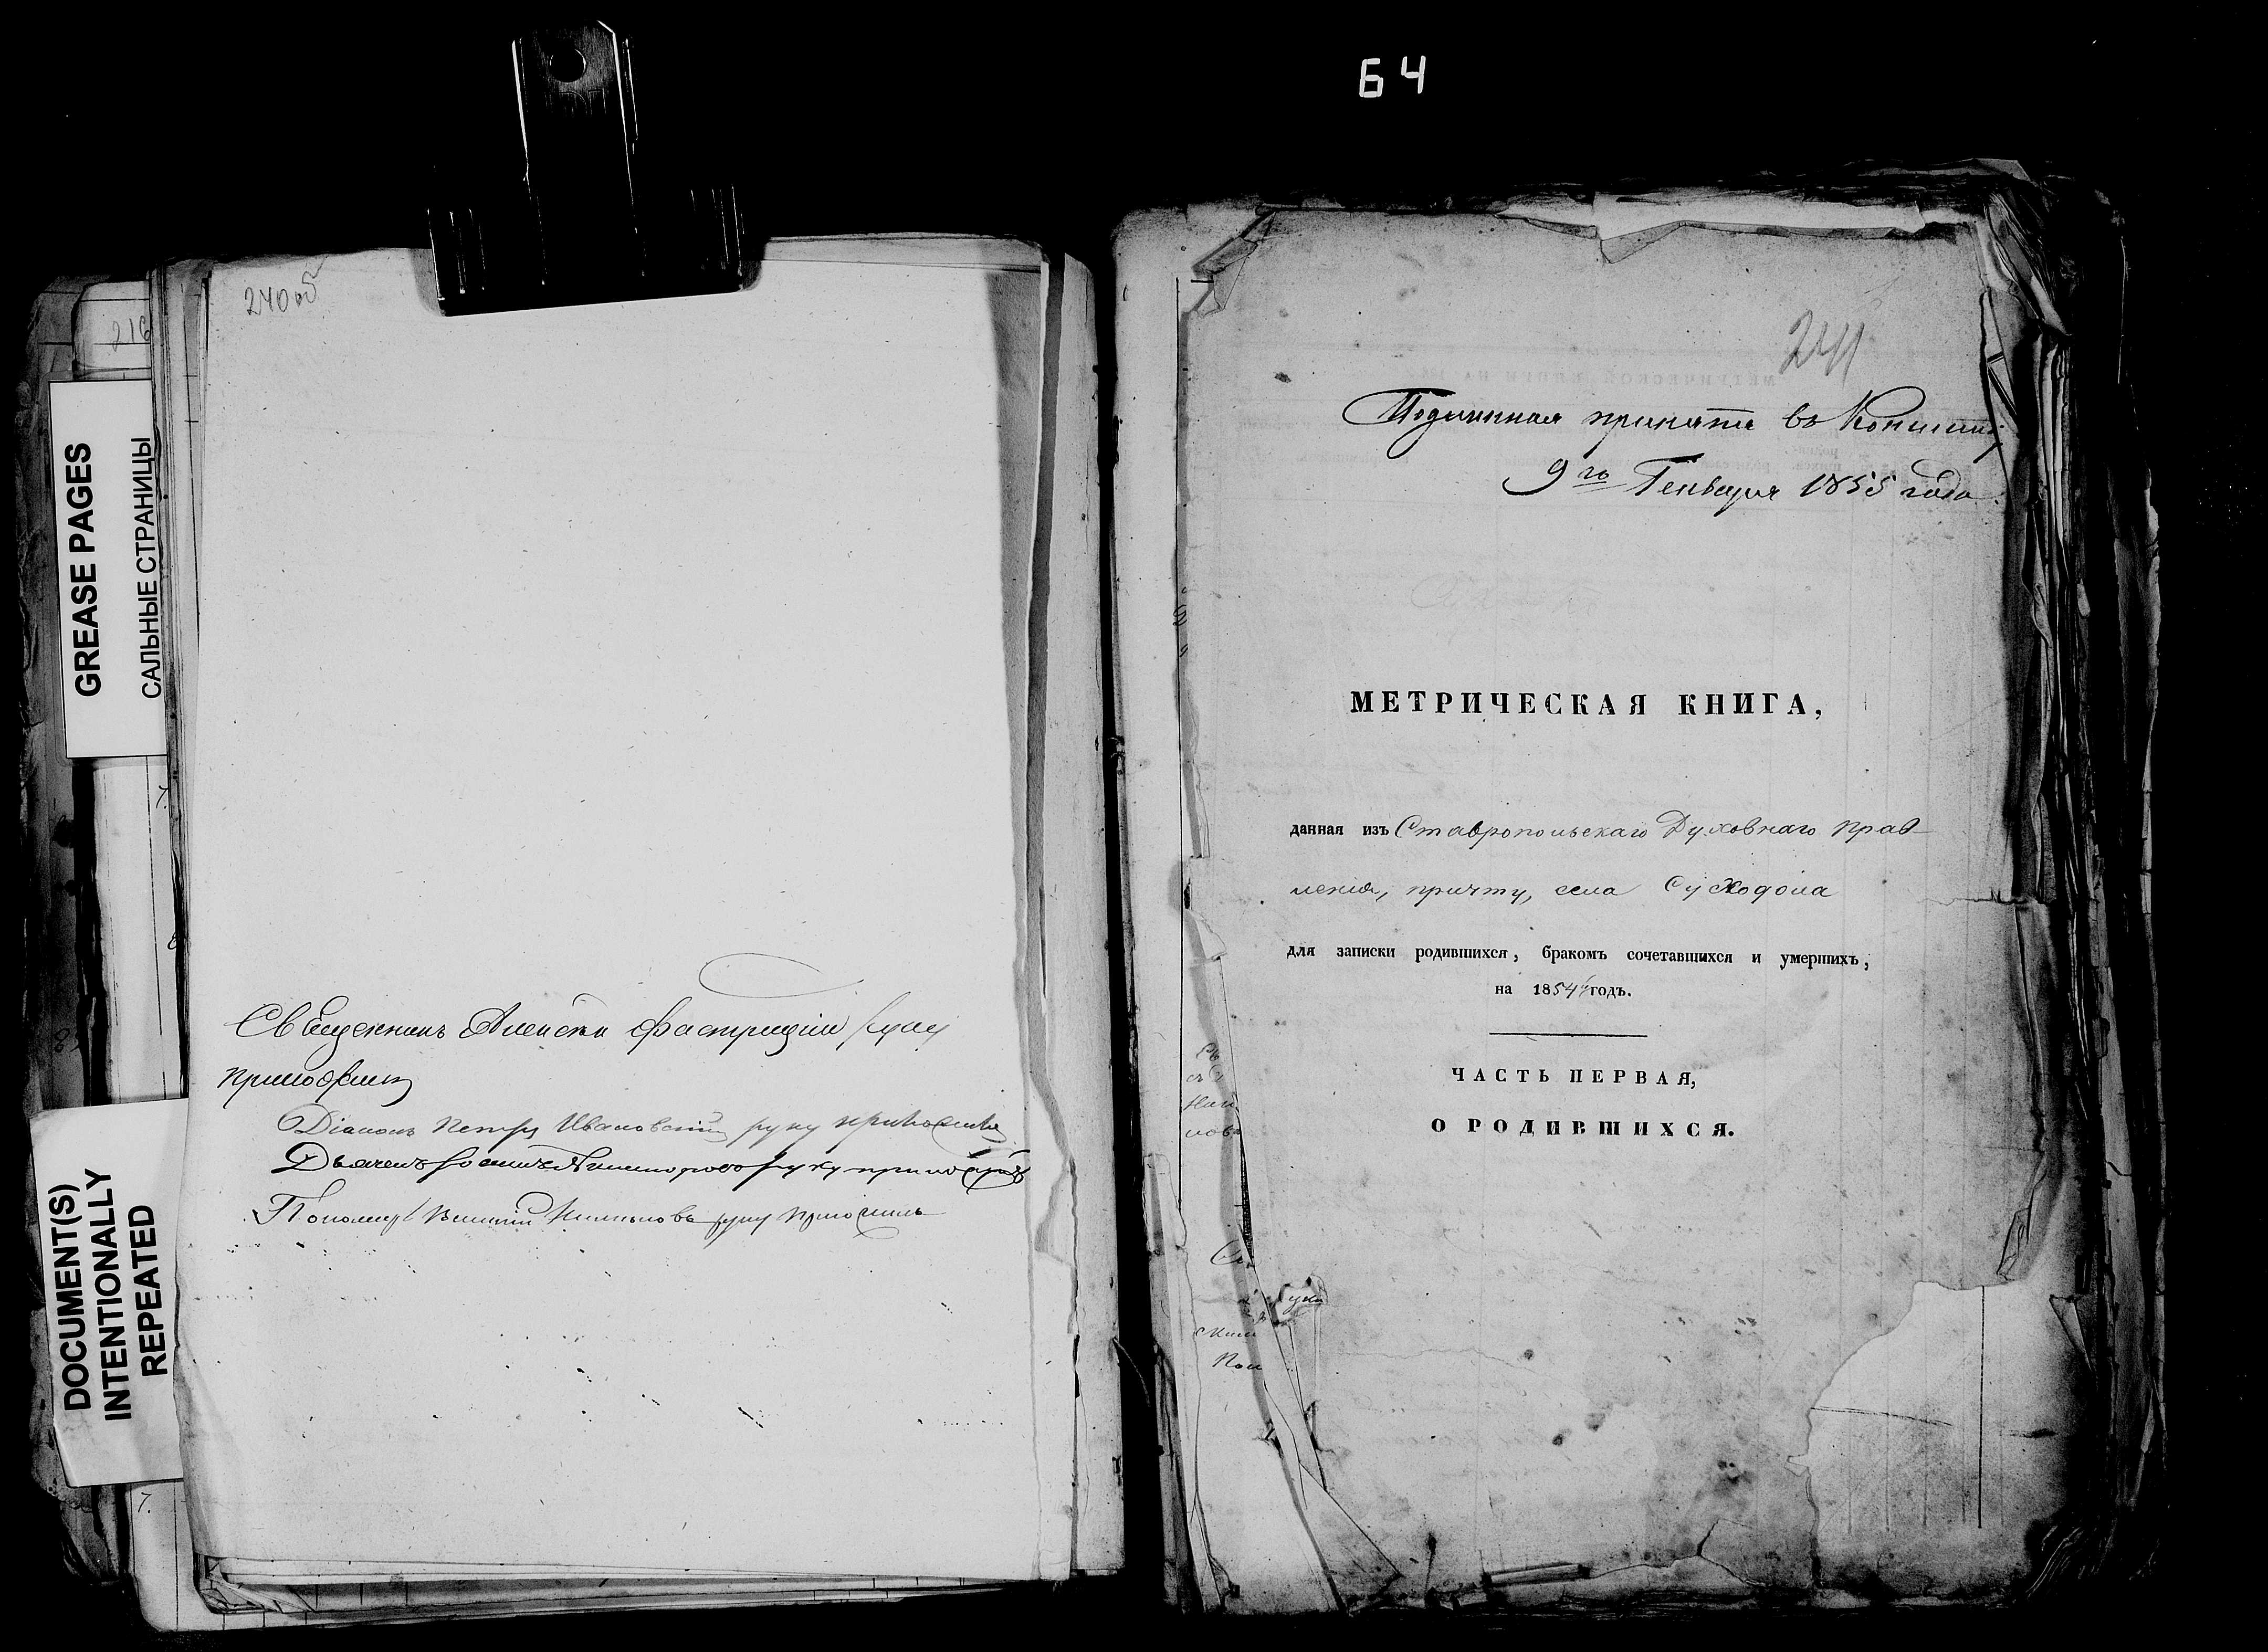 64
240 об
216
GREASE PAGES
САЛЬНЫЕ СТРАНИЦЫ
DOCUMENT(S)
INTENTIONALLY
REPEATED
7.
Священникъ Алексѣй руку
приложилъ
Діаконъ Петръ Ивановскій руку приложилъ
Дьячекъ руку приложилъ
Пономарь руку приложилъ
241
Подлинная принята въ
9го Генваря 1855 года.
МЕТРИЧЕСКАЯ КНИГА,
данная изъ Ставропольскаго Духовнаго прав-
ленія, причту, села Суходола
для записки родившихся, бракомъ сочетавшихся и умершихъ,
на 1854й годъ.
ЧАСТЬ ПЕРВАЯ,
О РОДИВШИХСЯ.